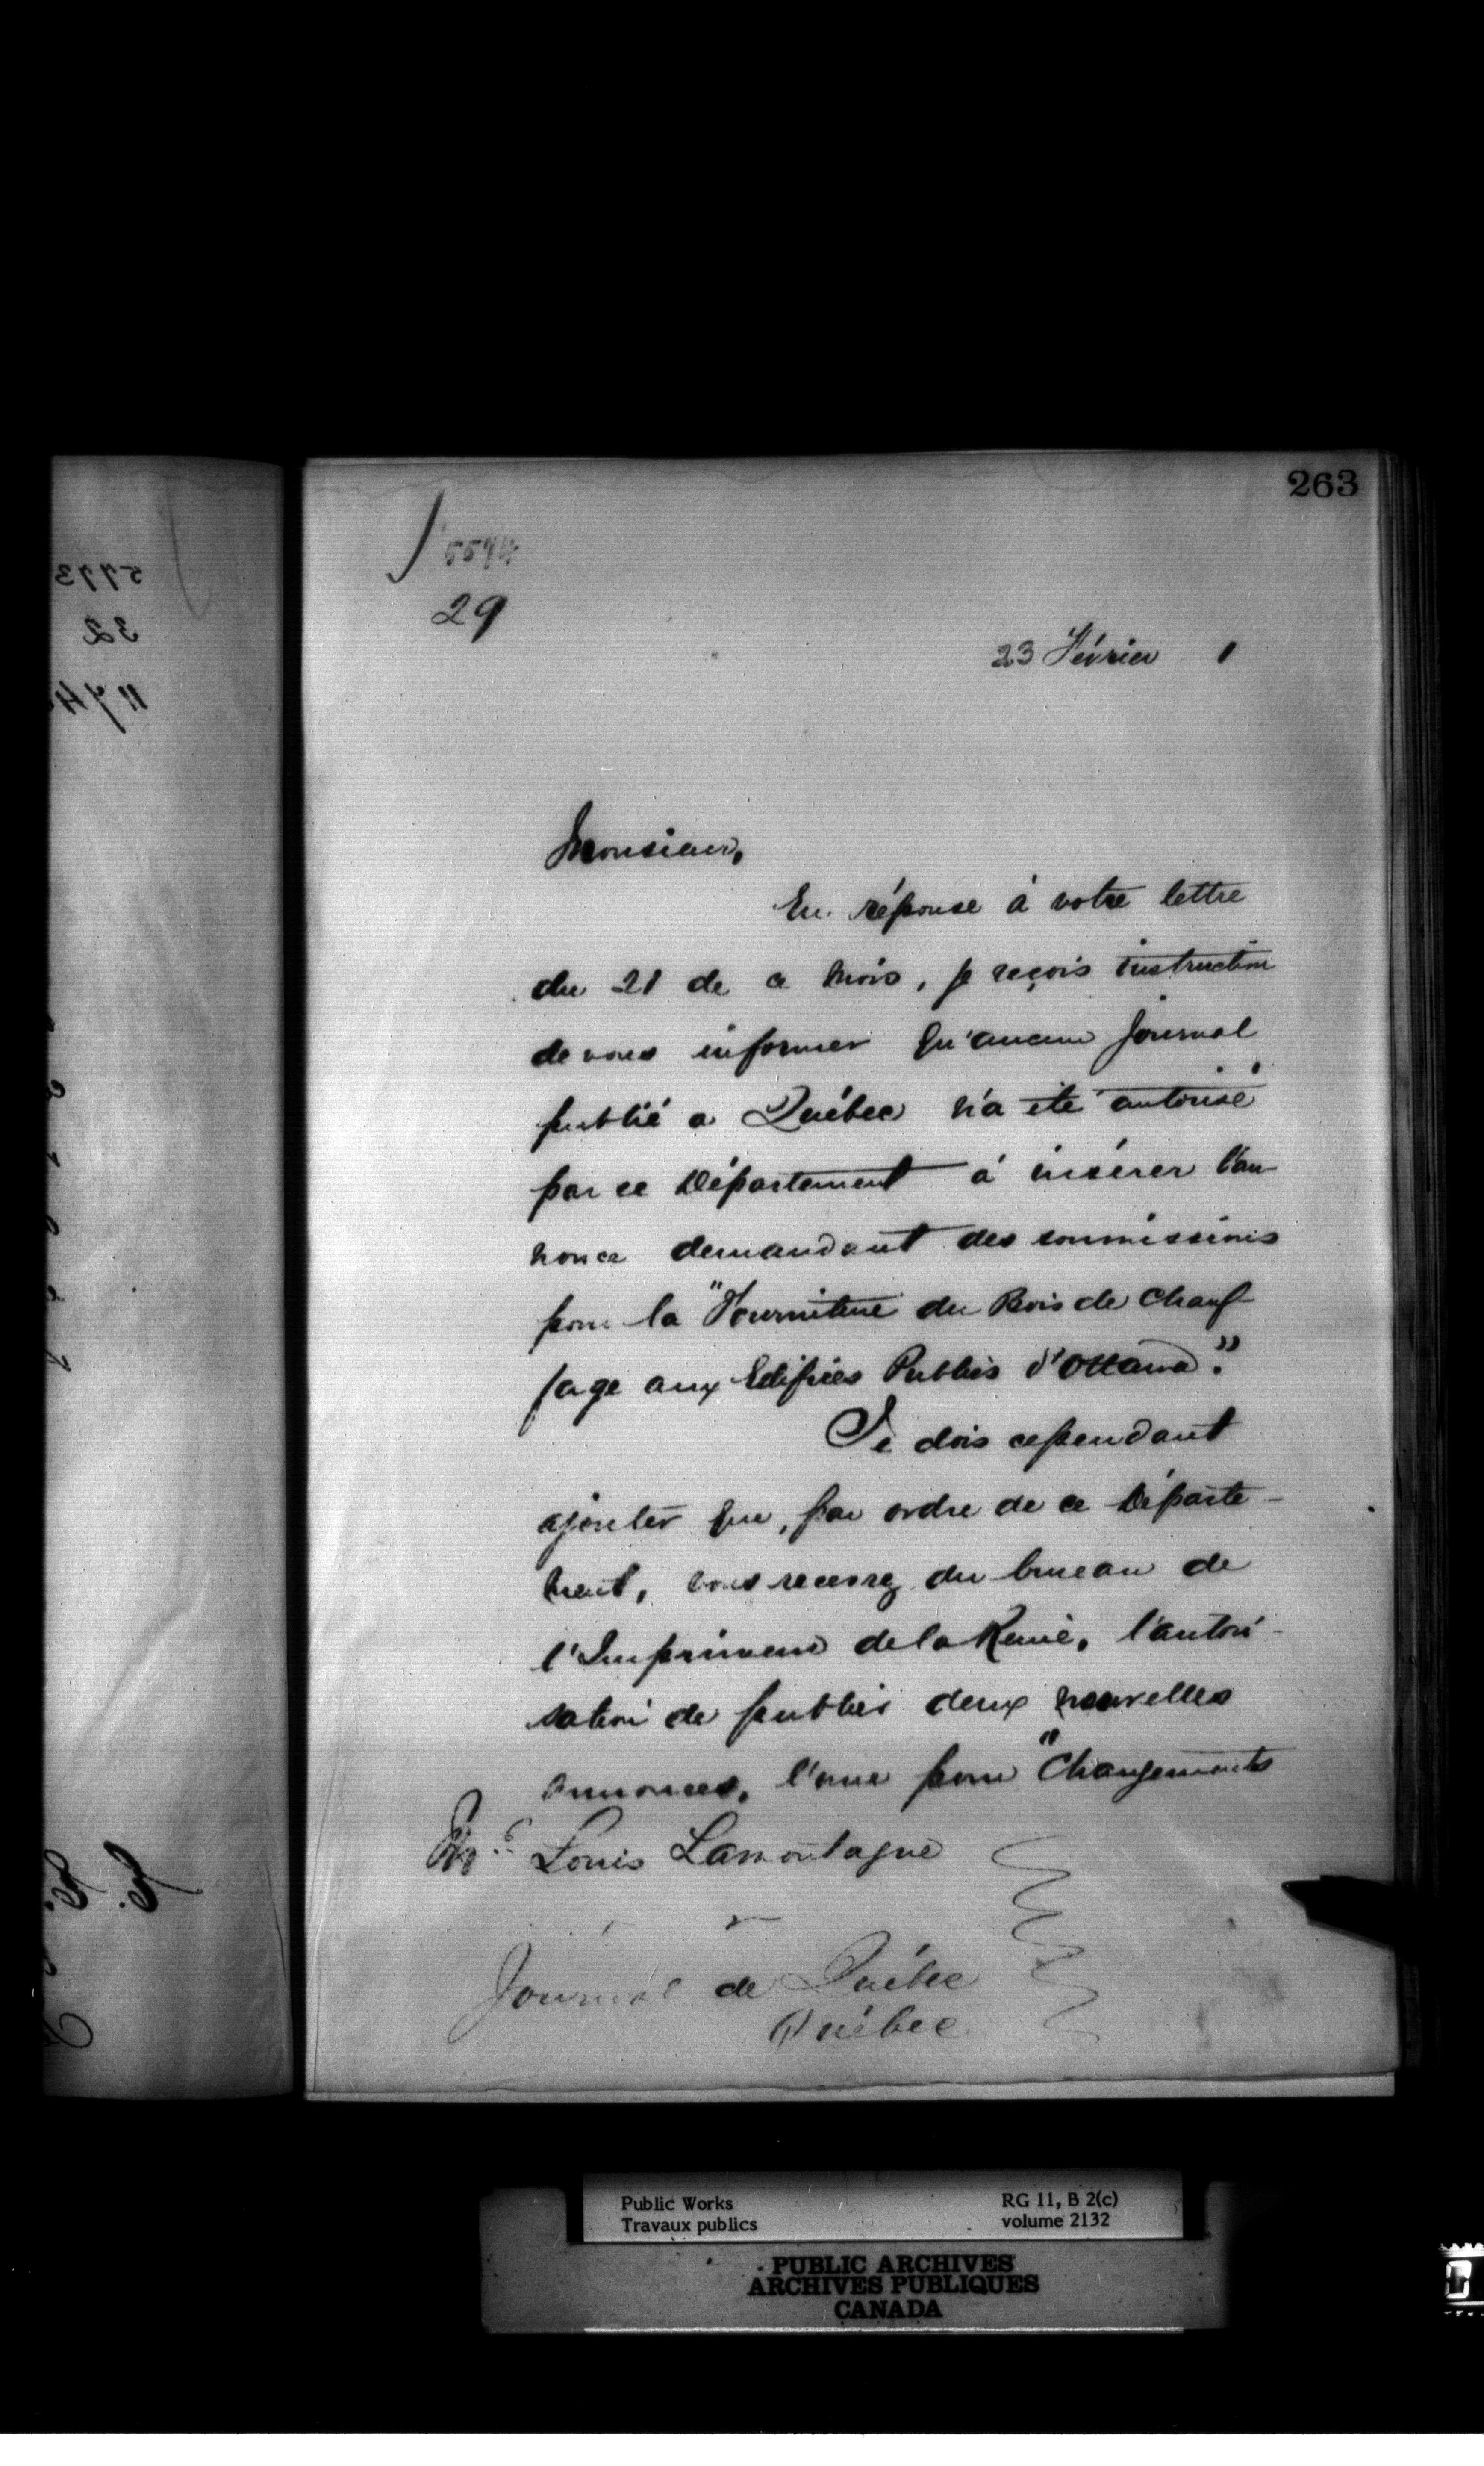 263
5594
29
23 Février 1
Monsieur,
En réponse à votre lettre
du 21 de ce mois, je reçois instruction
de vous informer qu'aucun journal
publié a Québec n'a été autorisé
par ce Département à insérer l'an-
nonce demandant des soumissions
pour la "Fourniture du Bois de Chauf-
fage aux Edifices Publics d'Ottawa".
Je dois cependant
ajouter que, par ordre de ce Départe-
ment, vous recevrez du bureau de
l'Imprimeur de la Reine, l'autori-
sation de publier deux nouvelles
annonces, l'une pour "Changements
Mr. Louis Lamontagne
Journal de Québec
Québec
5773
32
1174
Public Works
Travaux publics
RG 11, B 2(c)
volume 2132
PUBLIC ARCHIVES
ARCHIVES PUBLIQUES
CANADA